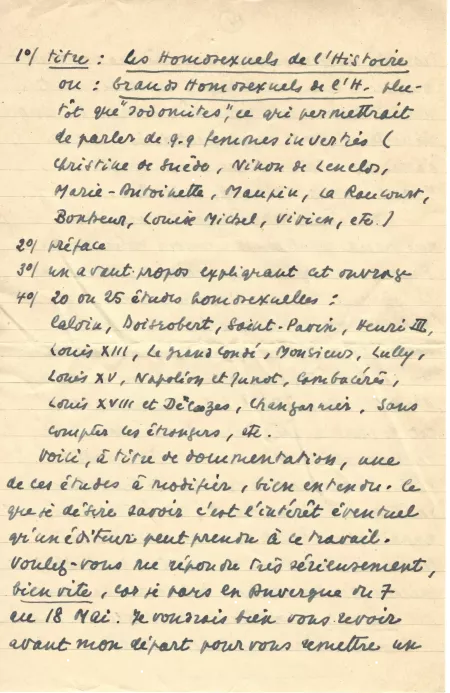 1°/ titre : Les Homosexuels de l'Histoire
ou : Grands Homosexuels de l'H. plu-
tôt que "sodomites", ce qui permettrait
de parler de q.q femmes inverties (
Christine de Suède, Ninon de Lenclos,
Marie-Antoinette, Maupin, La Raucourt,
Bonheur, Louise Michel, Vivien, etc.)
2°/ préface
3°/ un avant-propos expliquant cet ouvrage
4°/ 20 ou 25 études homosexuelles :
Calvin, Boisrobert, Saint-Pavin, Henri III,
Louis XIII, Le grand Condé, Monsieur, Lully,
Louis XV, Napoléon et Junot, Cambacérès,
Louis XVIII et Décazes, Changarnier, Sans
compter les étrangers, etc.
Voici, à titre de documentation, une
de ces études à modifier, bien entendu. Ce
que je désire savoir c'est l'intérêt éventuel
qu'un éditeur peut prendre à ce travail.
Voulez-vous me répondre très sérieusement,
bien vite, car je pars en Auvergne du 7
au 18 Mai. Je voudrais bien vous revoir
avant mon départ pour vous remettre un